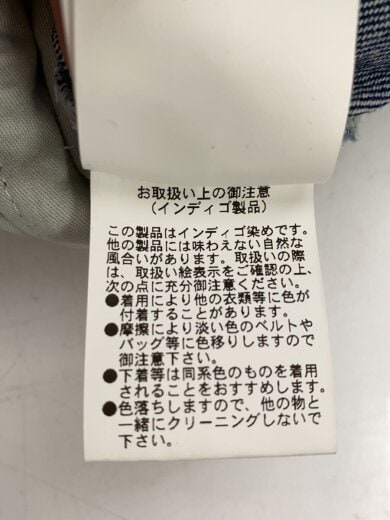 お取扱い上の御注意
（インディゴ製品）
この製品はインディゴ染めです。
他の製品には味わえない自然な
風合いがあります。取扱いの際
は、取扱い絵表示をご確認の上、
次の点に充分御注意ください。
●着用により他の衣類等に色が
付着することがあります。
●摩擦により淡い色のベルトや
バッグ等に色移りしますので
御注意下さい。
●下着等は同系色のものを着用
されることをおすすめします。
●色落ちしますので、他の物と
一緒にクリーニングしないで
下さい。